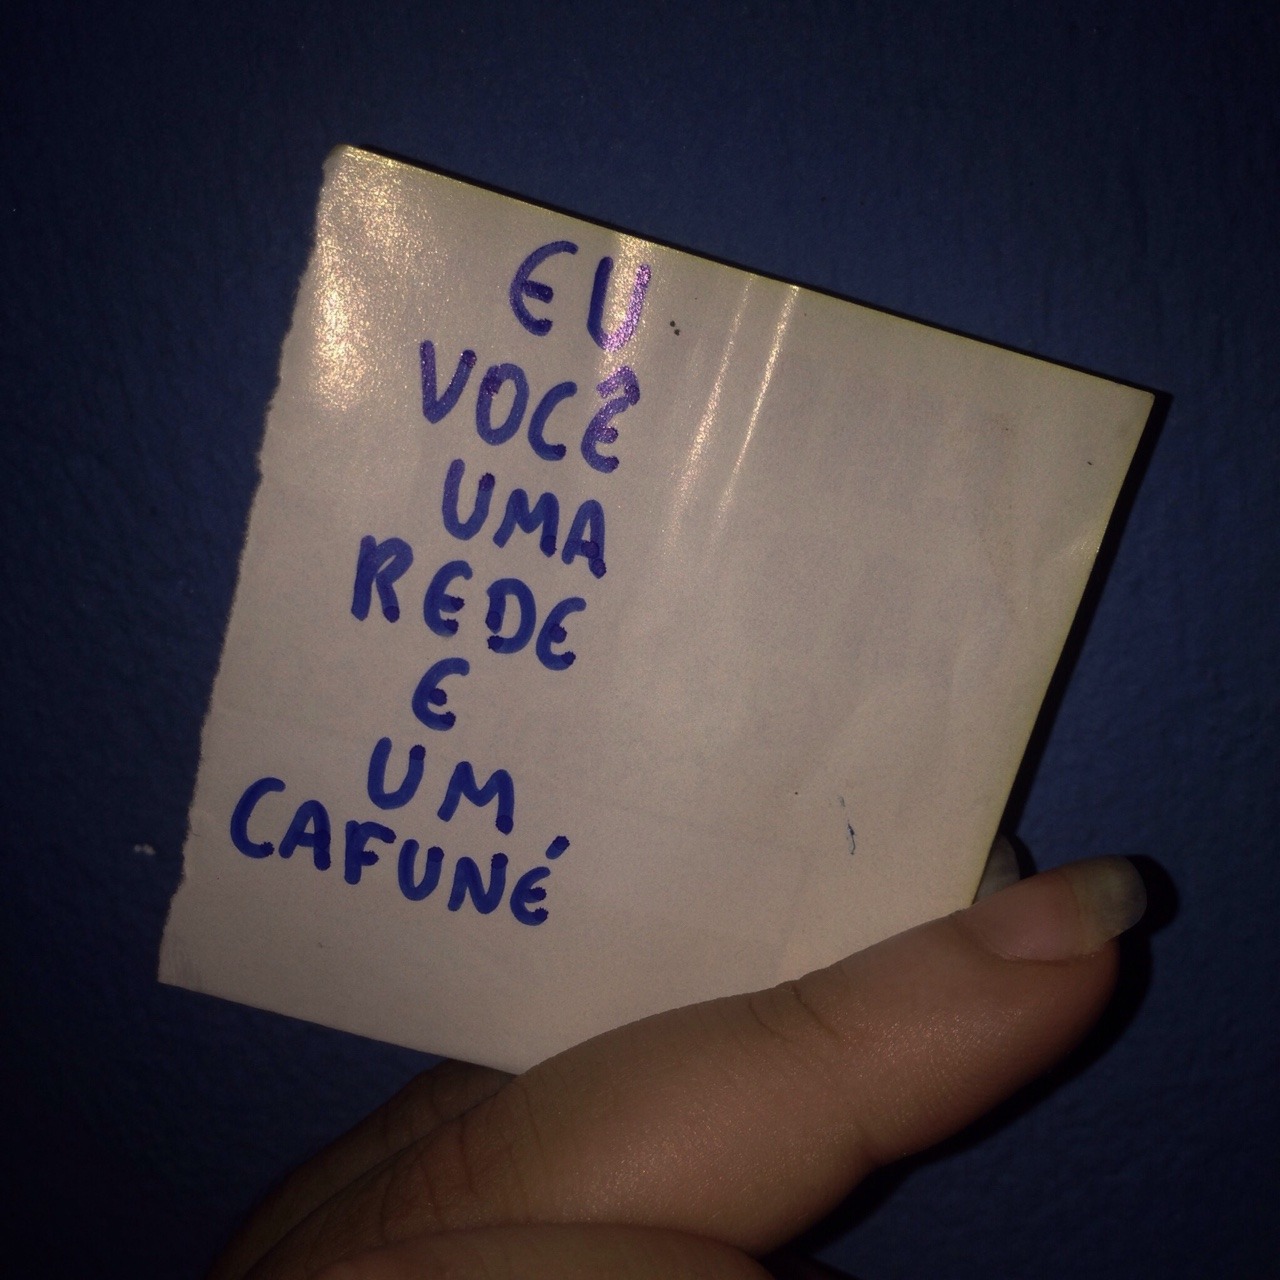 EU
VOCÊ
UMA
REDE
E
UM
CAFUNÉ